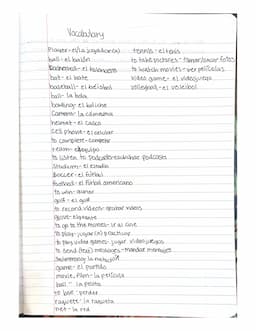 Vocabulary
Player - el/la jugador(a)
ball - el balón
Basketball - el baloncesto
bat - el bate
baseball - el beisbol
ball - la bola
bowling - el boliche
Camera - la cámara
helmet - el casco
cell phone - el celular
to compete - competir
team - el equipo
to listen to podcasts - escuchar podcasts
Stadium - el estadio
Soccer - el fútbol
football - el fútbol americano
to win - ganar
golf - el golf
to record videos - grabar videos
glove - el guante
to go to the movies - ir al cine
to play - jugar (a) / practicar
to play video games - jugar videojuegos
to send (text) messages - mandar mensajes
Swimming - la natación
game - el partido
movie, film - la película
ball - la pelota
to lose - perder
racquet - la raqueta
net - la red
tennis - el tenis
to take pictures - tomar/sacar fotos
to watch movies - ver películas
video game - el videojuego
volleyball - el voleibol